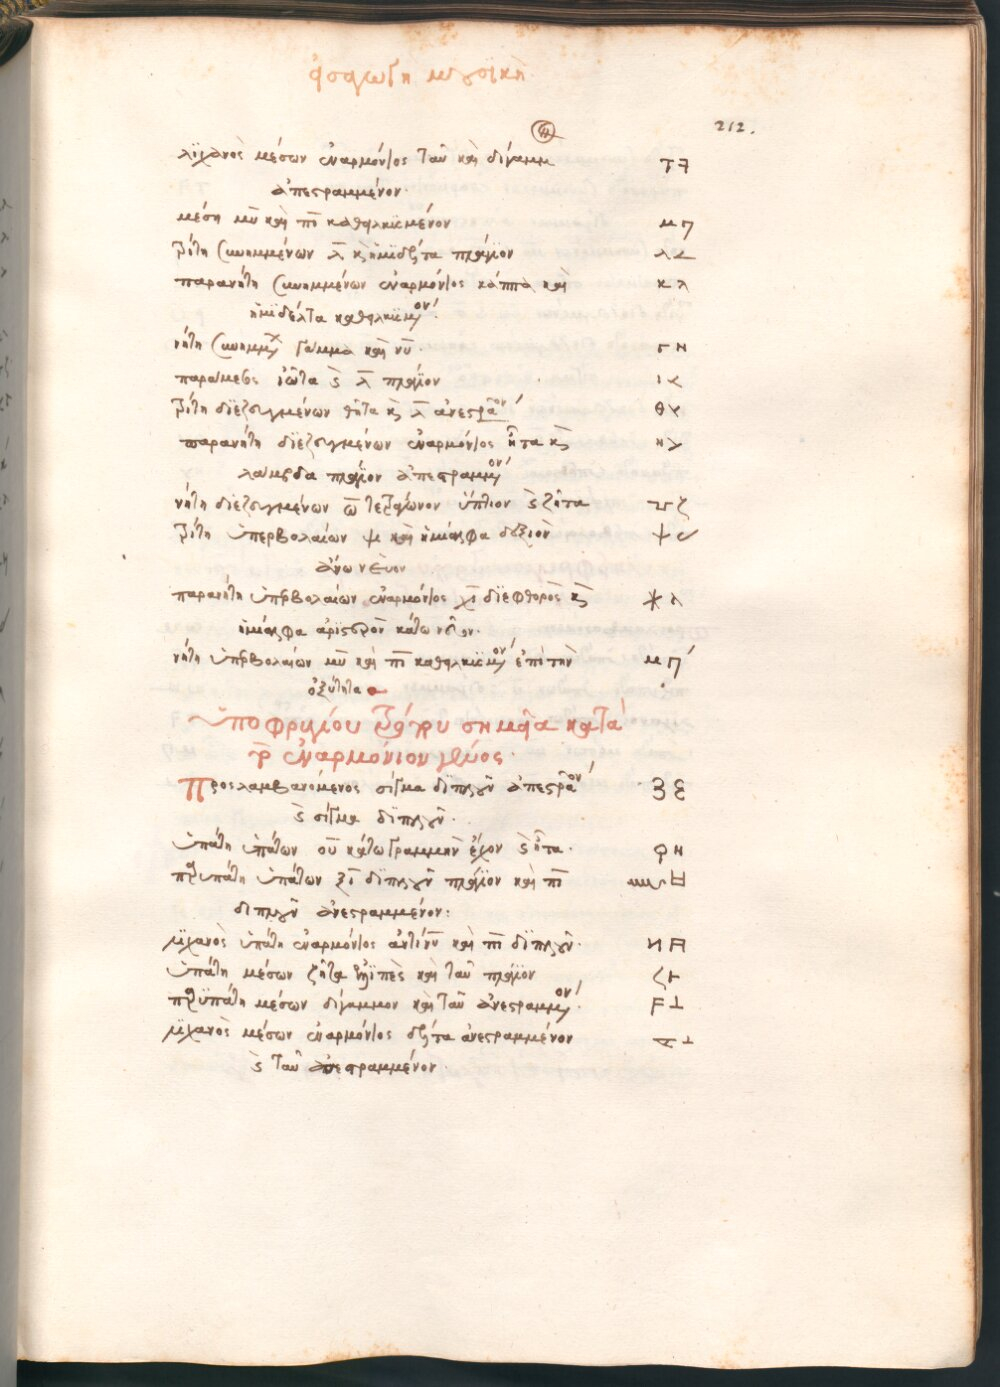 μουσικὴ
212.
λίχανὸς μέσων ἐναρμόνιος ταῦ καὶ δίγαμμ
ἀπεστραμμένον·
μέση μῦ καὶ πῖ καθειλκυσμένον Μ
τρίτη συνημμένων λ καὶ ἡμίδελτα πλάγιον
παρανήτη συνημμένων ἐναρμόνιος κάππα καὶ Κ λ
ἡμίδελτα καθειλκυσμον
νήτη συνημμ γάμμα καὶ νῦ · Γ Ν
παράμεσος ἰῶτα καὶ λ πλάγιον Ι
τρίτη διεζευγμένων θῆτα καὶ λ ἀνεστραον Θ
παρανήτη διεζευγμένων ἐναρμόνιος ἦτα καὶ Η
λάμβδα πλάγιον ἀπεστραμμον
νήτη διεζευγμένων ω τετράγωνον ὕπτιον καὶ ζῆτα Ζ
τρίτη ὑπερβολαίων ψ καὶ ἡμίαλφα δεξιὸν Ψ
ἄνω νεῦον
παρανήτη ὑπερβολαίων ἐναρμόνιος χῖ διεφθορὸς καὶ
ἡμίαλφα ἀριστερὸν κάτω νεῦον·
νήτη ὑπερβολαίων μῦ καὶ πῖ καθειλκυσμον ἐπὶ τὴν Μ
ὀξύτητα
ὑποφρυγίου τρόπου σημεῖα κατὰ
τὸ ἐναρμόνιον γένος·
Προσλαμβανόμενος σίγμα διπλοῦν ἀπεστραον
καὶ σίγμα διπλοῦν·
ὑπάτη ὑπάτων οὖ κάτω γραμμὴν ἔχον καὶ ἦτα· Η
παρυπάτη ὑπάτων ξῖ διπλοῦν πλάγιον καὶ πῖ
διπλοῦν ἀνεστραμμένον:
λίχανὸς ὑπάτη ἐναρμόνιος ἀντίνυ καὶ πῖ διπλοῦν· И
ὑπάτη μέσων ζῆτα ἐλλιπὲς καὶ ταῦ πλάγιον
παρυπάτη μέσων δίγαμμον καὶ ταῦ ἀνεστραμμον · Ϝ ⊥
λίχανὸς μέσων ἐναρμόνιος δέλτα ἀνεστραμμένον
καὶ ταῦ ἀνεστραμμένον·